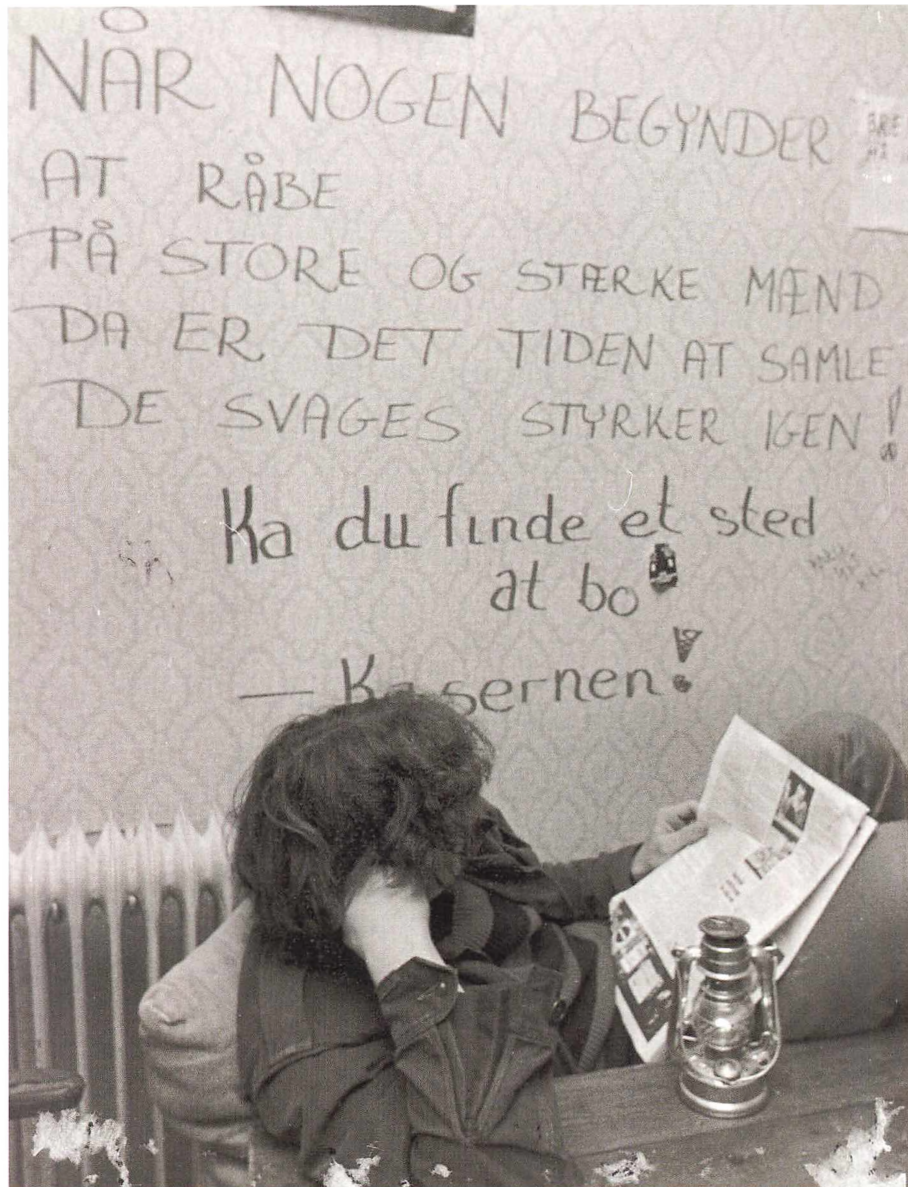 NÅR NOGEN BEGYNDER
AT RÅBE
PÅ STORE OG STÆRKE MÆND
DA ER DET TIDEN AT SAMLE
DE SVAGES STYRKER IGEN!
Ka du finde et sted
at bo
— Kasernen!